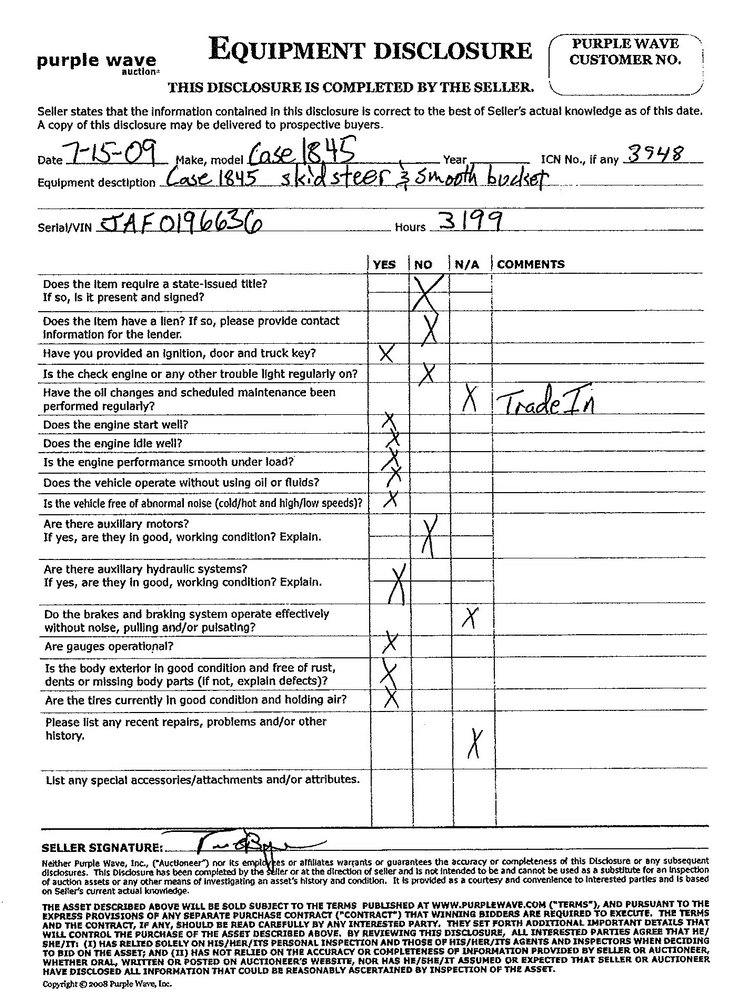 purple wave
auction
EQUIPMENT DISCLOSURE
PURPLE WAVE
CUSTOMER NO.
THIS DISCLOSURE IS COMPLETED BY THE SELLER.
Seller states that the information contained in this disclosure is correct to the best of Seller's actual knowledge as of this date.
A copy of this disclosure may be delivered to prospective buyers.
Date 7-15-09 Make, model Case 1845 Year ICN No., if any 3948
Equipment description Case 1845 skidsteer & smooth bucket
Serial/VIN JAF0196636 Hours 3199
YES NO N/A COMMENTS
Does the item require a state-issued title?
If so, is it present and signed? X
Does the item have a lien? If so, please provide contact
information for the lender. X
Have you provided an ignition, door and truck key? X
Is the check engine or any other trouble light regularly on? X
Have the oil changes and scheduled maintenance been
performed regularly? X Trade In
Does the engine start well? X
Does the engine idle well? X
Is the engine performance smooth under load? X
Does the vehicle operate without using oil or fluids? X
Is the vehicle free of abnormal noise (cold/hot and high/low speeds)? X
Are there auxiliary motors?
If yes, are they in good, working condition? Explain. X
Are there auxiliary hydraulic systems?
If yes, are they in good, working condition? Explain. X
Do the brakes and braking system operate effectively
without noise, pulling and/or pulsating? X
Are gauges operational? X
Is the body exterior in good condition and free of rust,
dents or missing body parts (if not, explain defects)? X
Are the tires currently in good condition and holding air? X
Please list any recent repairs, problems and/or other
history. X
List any special accessories/attachments and/or attributes.
SELLER SIGNATURE:
Neither Purple Wave, Inc., ("Auctioneer") nor its employees or affiliates warrants or guarantees the accuracy or completeness of this Disclosure or any subsequent
disclosures. This Disclosure has been completed by the seller or at the direction of seller and is not intended to be and cannot be used as a substitute for an inspection
of auction assets or any other means of investigating an asset's history and condition. It is provided as a courtesy and convenience to interested parties and is based
on Sellers's actual knowledge.
THE ASSET DESCRIBED ABOVE WILL BE SOLD SUBJECT TO THE TERMS PUBLISHED AT WWW.PURPLEWAVE.COM ("TERMS"), AND PURSUANT TO THE
EXPRESS PROVISIONS OF ANY SEPARATE PURCHASE CONTRACT ("CONTRACT") THAT WINNING BIDDERS ARE REQUIRED TO EXECUTE. THE TERMS
AND THE CONTRACT, IF ANY, SHOULD BE READ CAREFULLY BY ANY INTERESTED PARTY. THEY SET FORTH ADDITIONAL IMPORTANT DETAILS THAT
WILL CONTROL THE PURCHASE OF THE ASSET DESCRIBED ABOVE. BY REVIEWING THIS DISCLOSURE, ALL INTERESTED PARTIES AGREE THAT HE/
SHE/IT: (I) HAS RELIED SOLELY ON HIS/HER/ITS PERSONAL INSPECTION AND THOSE OF HIS/HER/ITS AGENTS AND INSPECTORS WHEN DECIDING
TO BID ON THE ASSET; AND (II) HAS NOT RELIED ON THE ACCURACY OR COMPLETENESS OF INFORMATION PROVIDED BY SELLER OR AUCTIONEER,
WHETHER ORAL, WRITTEN OR POSTED ON AUCTIONEER'S WEBSITE, NOR HAS HE/SHE/IT ASSUMED OR EXPECTED THAT SELLER OR AUCTIONEER
HAVE DISCLOSED ALL INFORMATION THAT COULD BE REASONABLY ASCERTAINED BY INSPECTION OF THE ASSET.
Copyright © 2008 Purple Wave, Inc.